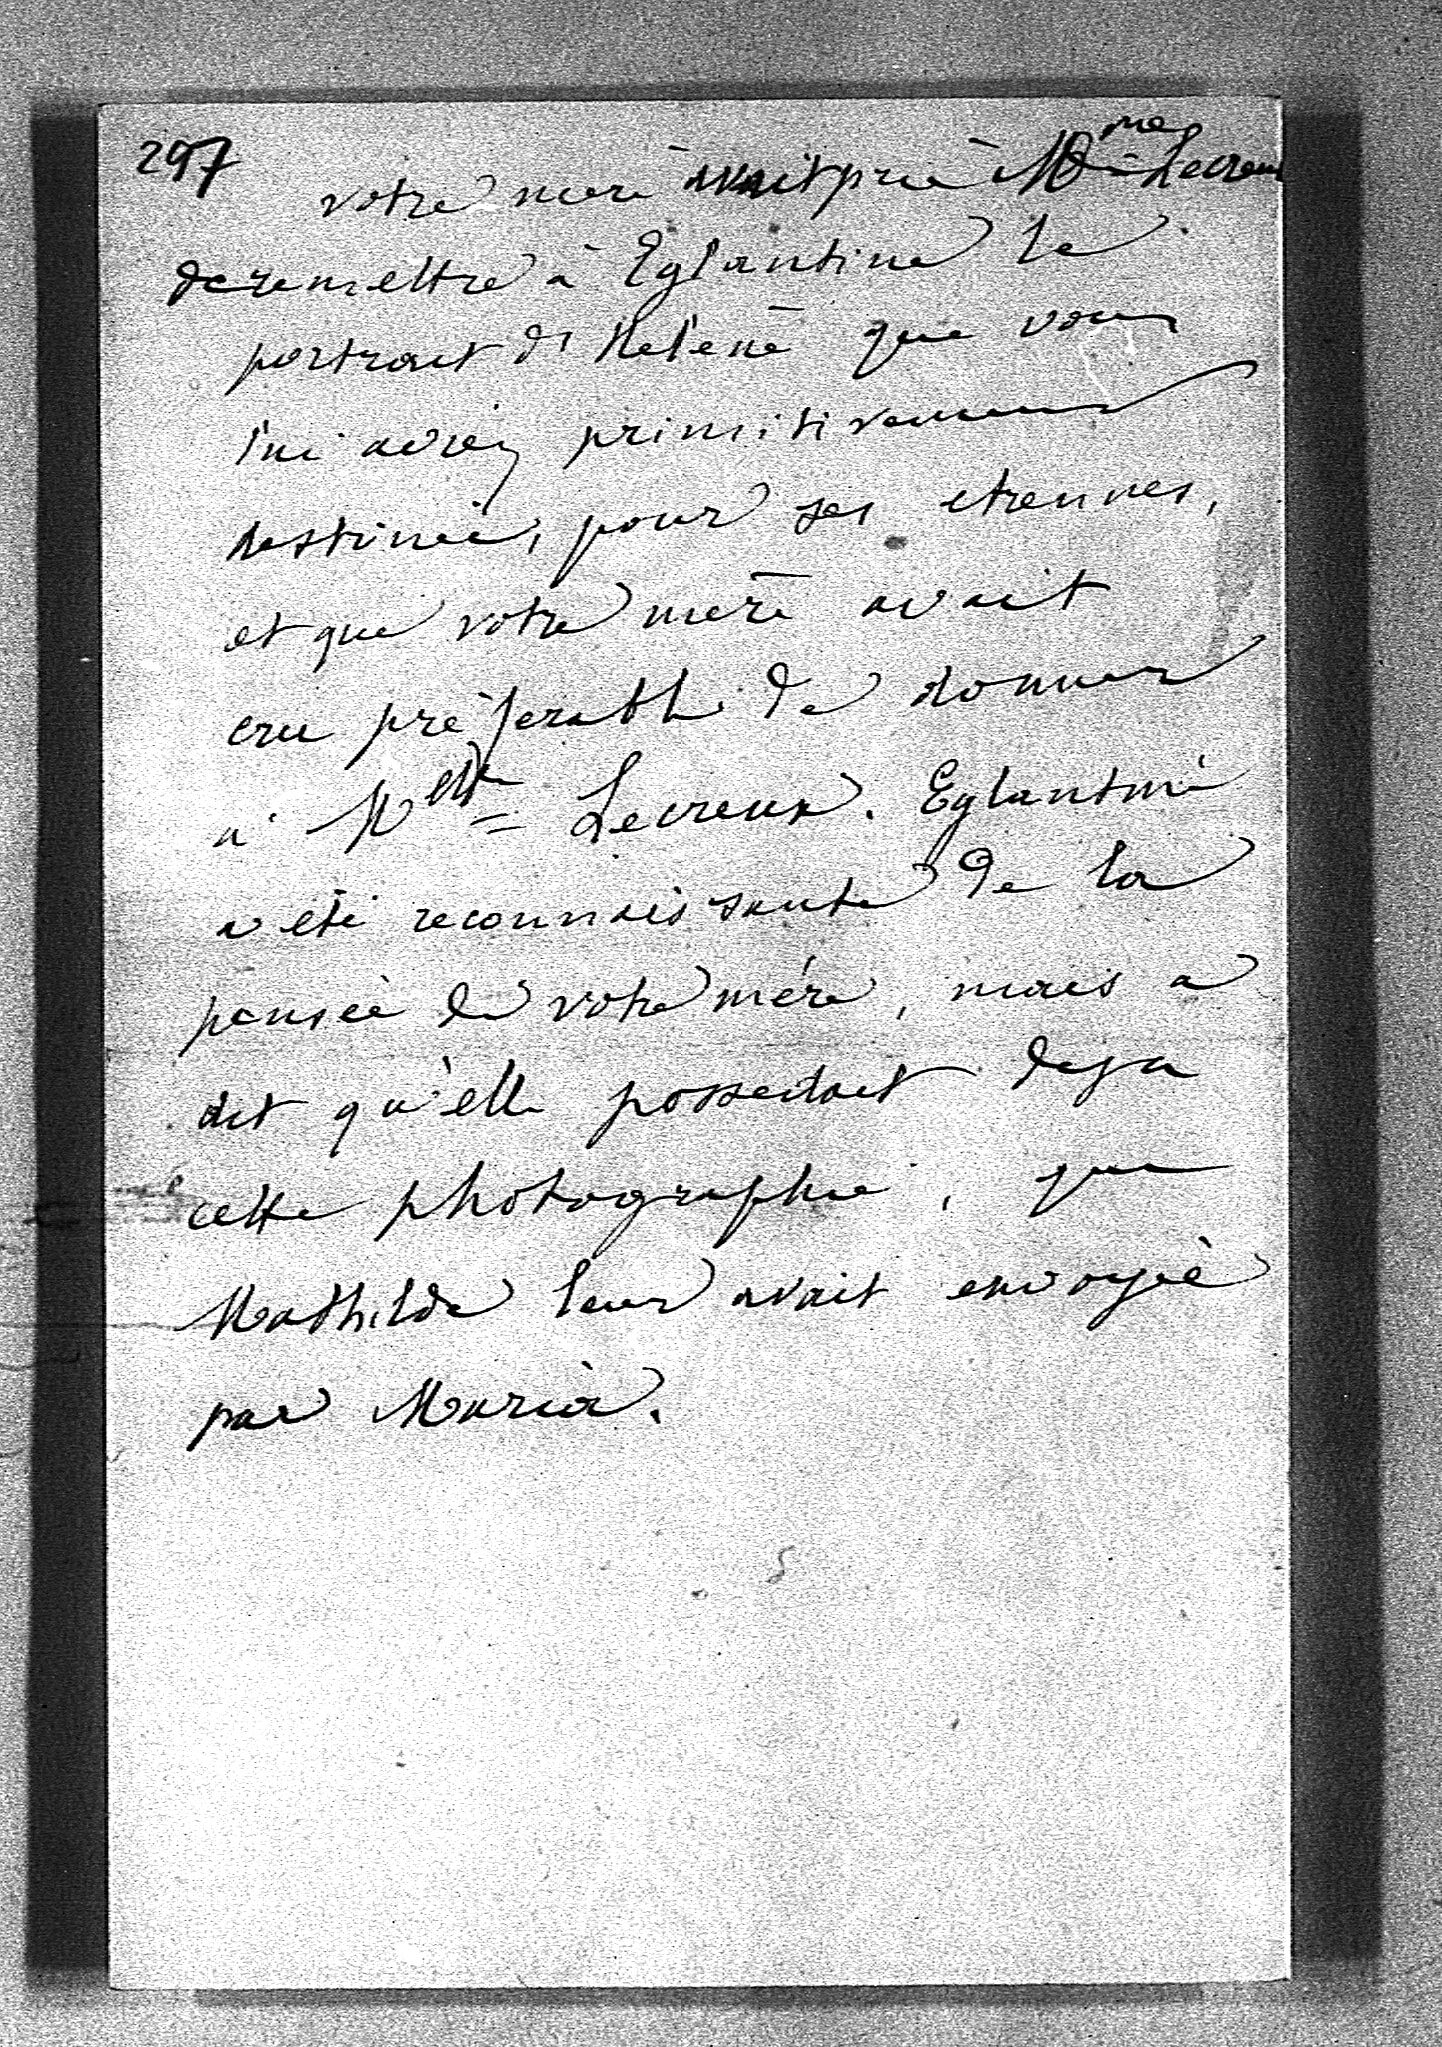 297
votre mère avait prié à Mme Lecreux
de remettre à Eglantine le
portrait d'Hélène que vous
lui aviez primitivement
destinée, pour ses etrennes,
et que votre mère avait
cru préferable de donner
à Melle Lecreux. Eglantine
a été reconnaissante de la
pensée de votre mére, mais a
dit qu'elle possedait deja
cette photographie, que
Mathilde leur avait envoyée
par Maria.